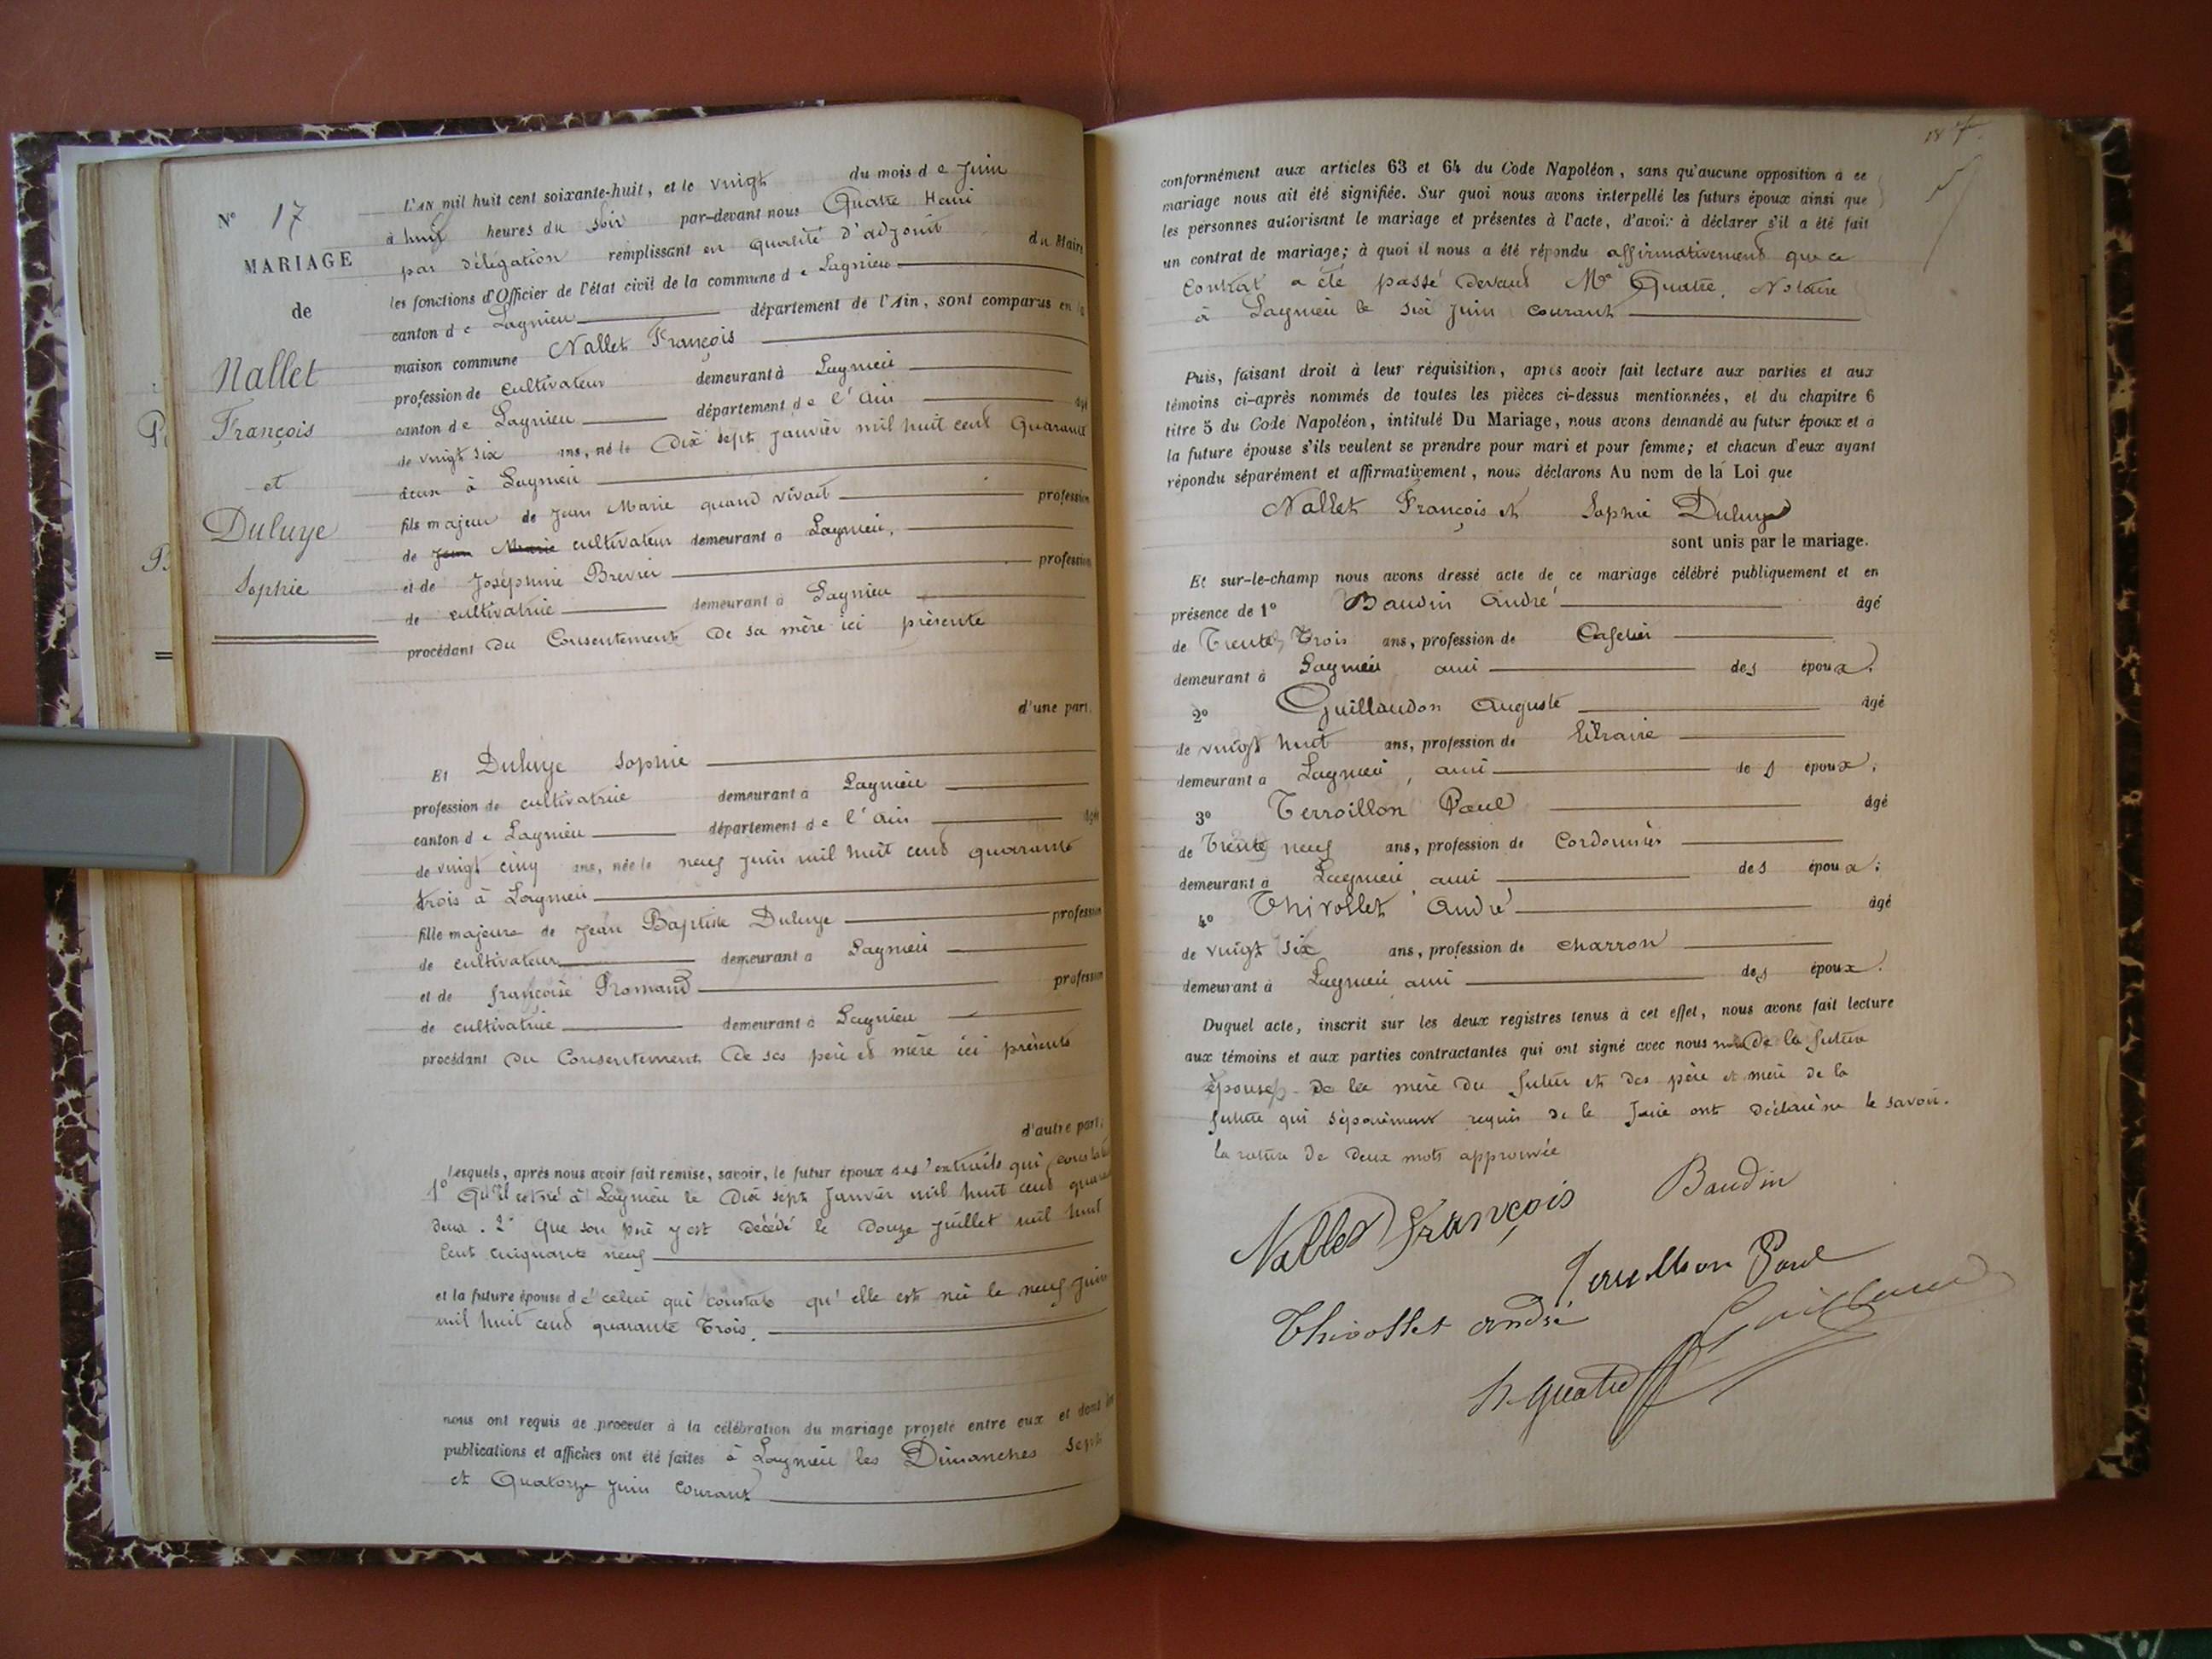 N° 17
MARIAGE
de
Nallet
François
et
Duluye
Sophie
L'AN mil huit cent soixante-huit, et le vingt du mois de Juin
à huit heures du soir par-devant nous Quatre Henri
par délégation remplissant en qualité d'adjoint du Maire
les fonctions d'Officier de l'état civil de la commune de Lagnieu
canton de Lagnieu département de l'Ain, sont comparus en la
maison commune Nallet François
profession de cultivateur demeurant à Lagnieu
canton de Lagnieu département de l'Ain âgé
de vingt six ans, né le Dix sept Janvier mil huit cent Quarante
deux à Lagnieu
fils majeur de Jean Marie quand vivait profession
de Jean Marie cultivateur demeurant à Lagnieu,
et de Joséphine Brevier profession
de cultivatrice demeurant à Lagnieu
procédant Du Consentement De sa mère ici présente
d'une part.
Et Duluye Sophie
profession de cultivatrice demeurant à Lagnieu
canton de Lagnieu département de l'Ain âgée
de vingt cinq ans, née le neuf Juin mil huit cent quarante
trois à Lagnieu
fille majeure de Jean Baptiste Duluye profession
de cultivateur demeurant à Lagnieu
et de françoise Promand profession
de cultivatrice demeurant à Lagnieu
procédant Du Consentement De ses père et mère ici présents
d'autre part;
Lesquels, après nous avoir fait remise, savoir, le futur époux des extraits qui constate
1° Qu'il est né à Lagnieu le Dix sept Janvier mil huit cent quarante
deux. 2° Que son père y est décédé le Douze Juillet mil huit
Cent cinquante neuf
et la future épouse de celui qui constate qu'elle est née le neuf Juin
mil huit cent quarante Trois.
nous ont requis de procéder à la célébration du mariage projeté entre eux et dont les
publications et affiches ont été faites à Lagnieu les Dimanches Sept
et Quatorze Juin Courant
conformément aux articles 63 et 64 du Code Napoléon, sans qu'aucune opposition à ce
mariage nous ait été signifiée. Sur quoi nous avons interpellé les futurs époux ainsi que
les personnes autorisant le mariage et présentes à l'acte, d'avoir à déclarer s'il a été fait
un contrat de mariage; à quoi il nous a été répondu affirmativement que ce
Contrat a été passé devant Me Quatre, Notaire
à Lagnieu le six Juin courant
Puis, faisant droit à leur réquisition, après avoir fait lecture aux parties et aux
témoins ci-après nommés de toutes les pièces ci-dessus mentionnées, et du chapitre 6
titre 5 du Code Napoléon, intitulé Du Mariage, nous avons demandé au futur époux et à
la future épouse s'ils veulent se prendre pour mari et pour femme; et chacun d'eux ayant
répondu séparément et affirmativement, nous déclarons Au nom de la Loi que
Nallet François et Sophie Duluye
sont unis par le mariage.
Et sur-le-champ nous avons dressé acte de ce mariage célébré publiquement et en
présence de 1° Baudin André âgé
de Trente Trois ans, profession de Cafetier
demeurant à Lagnieu ami des époux;
2° Guillaudon Auguste âgé
de vingt huit ans, profession de libraire
demeurant à Lagnieu, ami des époux;
3° Terroillon Paul âgé
de Trente neuf ans, profession de Cordonnier
demeurant à Lagnieu ami des époux;
4° Thivollet André âgé
de vingt six ans, profession de charron
demeurant à Lagnieu ami des époux.
Duquel acte, inscrit sur les deux registres tenus à cet effet, nous avons fait lecture
aux témoins et aux parties contractantes qui ont signé avec nous non De la future
épouse De la mère Du futur et des père et mère De la
future qui séparément requis de le faire ont déclaré ne le savoir.
la rature De Deux mots approuvée
Nallet François Baudin
Terroillon Paul
Thivollet andré
h. Quatre